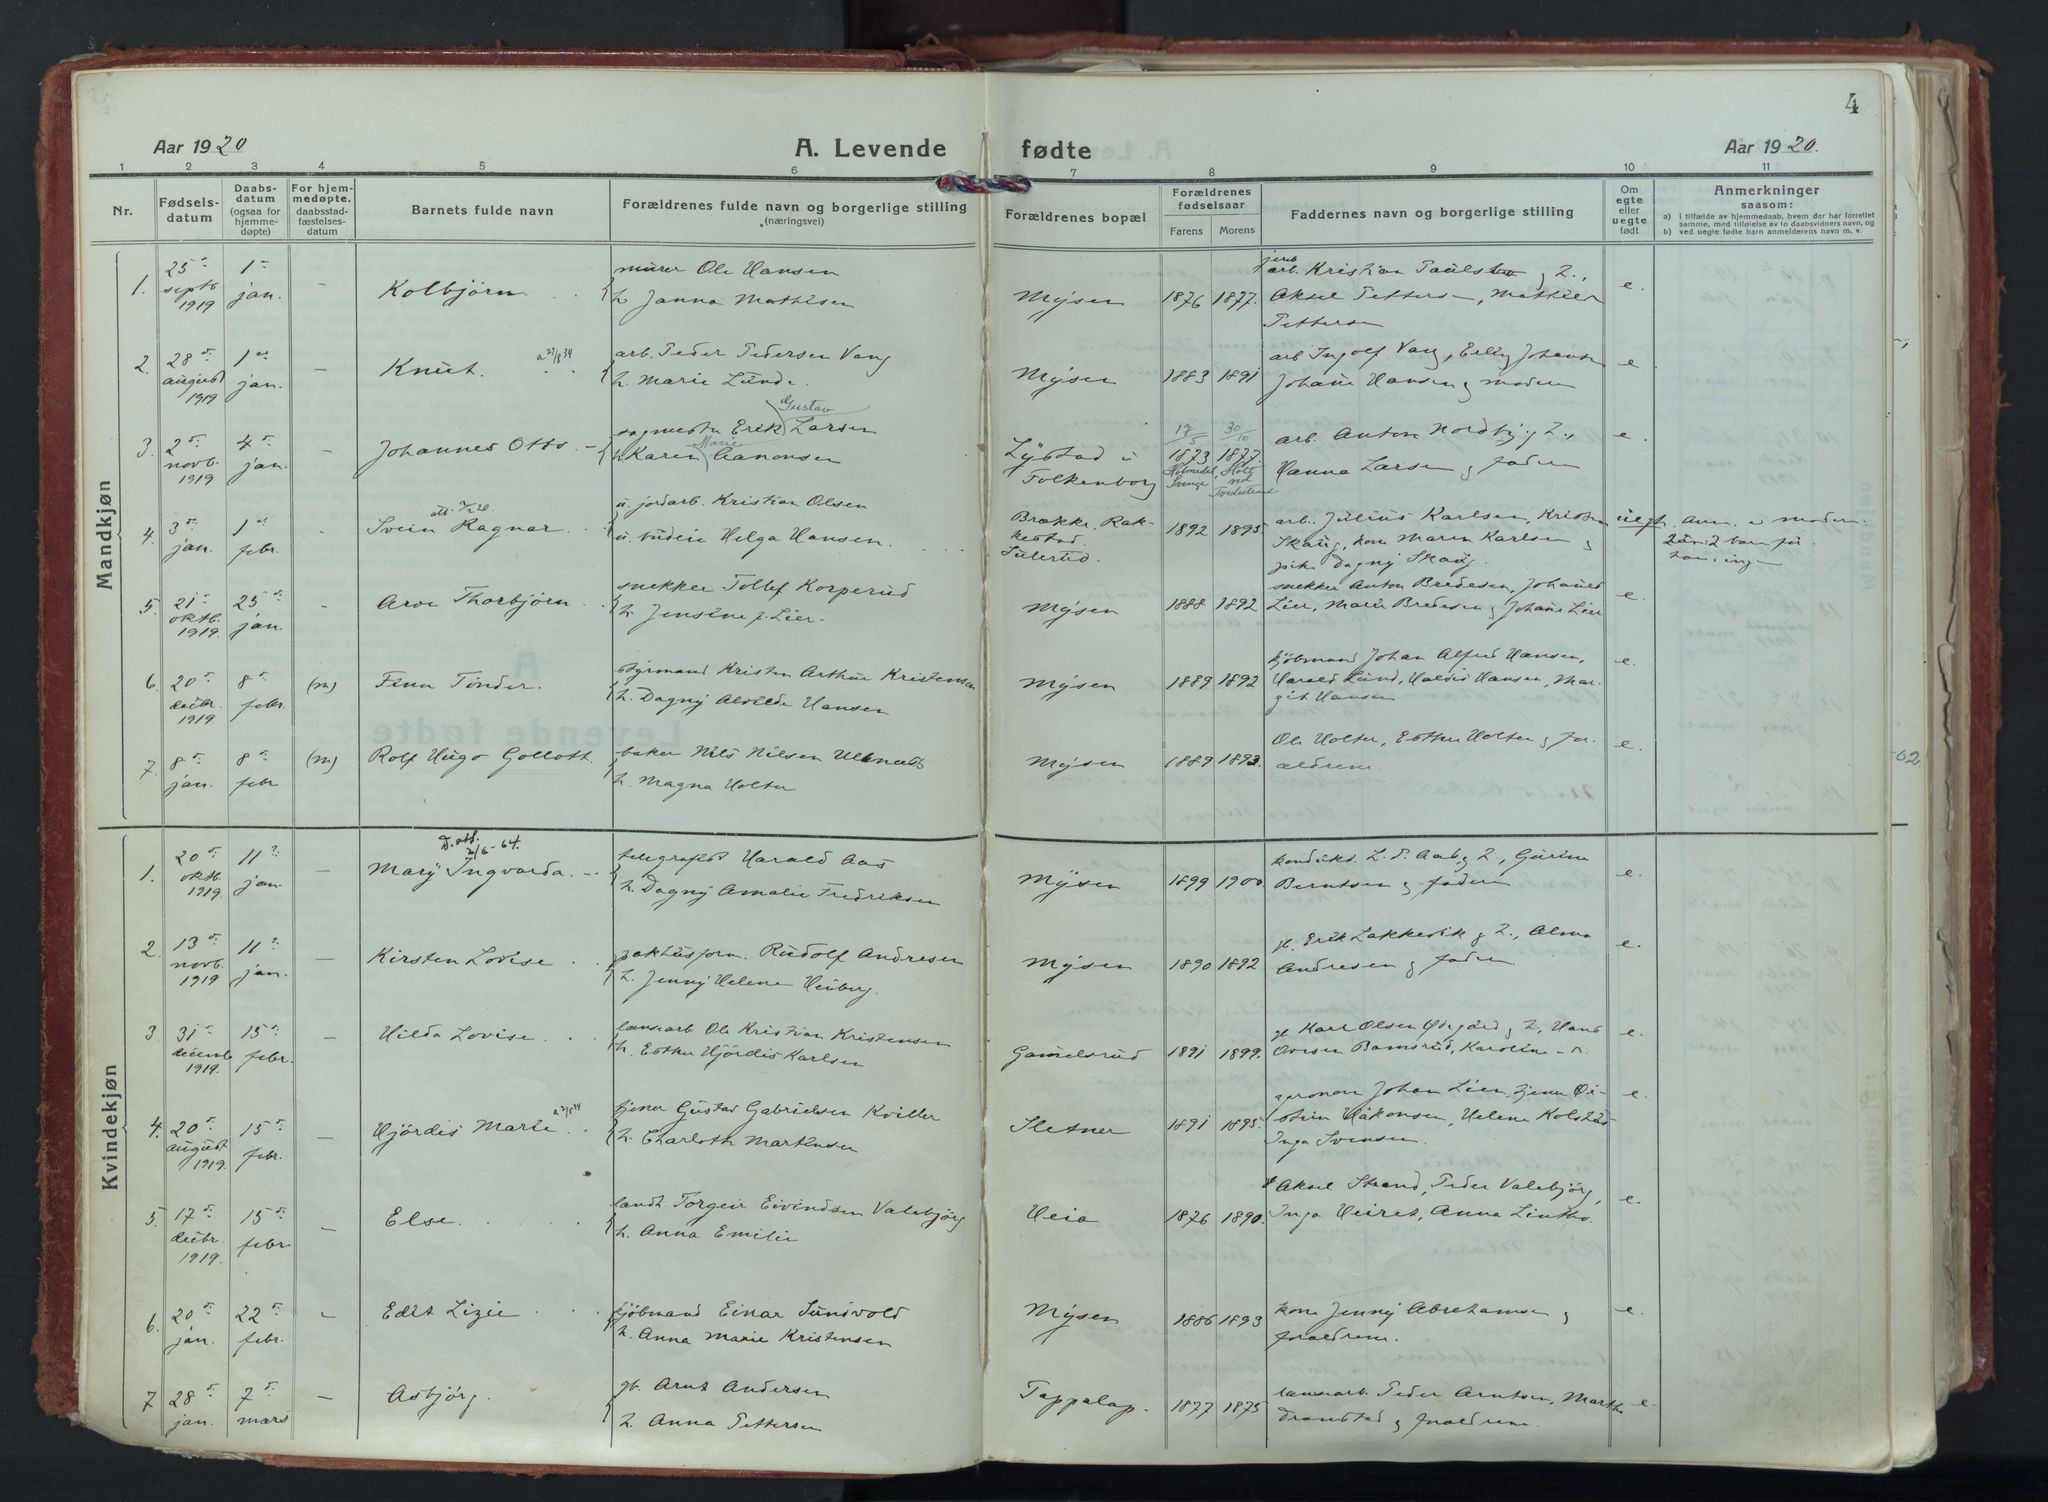 4
Aar 1920
A. Levende fødte
Aar 1920.
1 2 3 4 5 6 7 8 9 10 11
Nr.
Fødsels-
datum
Daabs-
datum
(ogsaa for
hjemme-
døpte)
For hjem-
medøpte,
daabsstad-
fæstelses-
datum
Barnets fulde navn
Forældrenes fulde navn og borgerlige stilling
(næringsvei)
Forældrenes bopæl
Forældrenes
fødselsaar
Farens Morens
Faddernes navn og borgerlige stilling
Om
egte
eller
uegte
født
Anmerkninger
saasom:
a) i tilfælde av hjemmedaab, hvem der har forrettet
samme, med tilføielse av to daabsvidners navn, og
b) ved uegte fødte barn anmelderens navn m. v.
Mandkjøn
1. 25 septb 1919 1 jan. – Kolbjørn
murer Ole Hansen
h. Janna Mathisen
Mysen 1876 1877.
arb. Kristian Paulsen og h.,
Aksel Pettersen, Mathier
Pettersen
e.
2. 28 august 1919 1 jan. – Knut. a 27/8 34
arb. Peder Pedersen Vang
h. Marie Lunde.
Mysen 1883 1891
arb Ingolf Vang, Erling Johansen
Johanne Hansen og moderen
e
3. 2 novb. 1919 4 jan. – Johannes Otto –
sagmester Erik Gustav Larsen
h. Karen Marie Aanonsen
Lystad i
Folkenborg
17/5 1873 Holmedal Sverige
30/10 1877. Holt ved Tvedestrand
arb. Anton Nordby og h.,
Hanna Larsen og faderen
e.
4. 3 jan. 1 febr. – Svein Ragnar
u. jordarb. Kristian Olsen
u. budeie Helga Hansen.
Brække, Rak-
kestad.
1892 1895.
arb. Julius Karlsen, Kristian
Skaug, kone Maren Karlsen og
pike Dagny Skaug.
uegt. Anm. e moder.
5. 21 oktb. 1919. 25 jan. – Arve Thorbjørn
snekker Tollef Korperud
h. Jensine f. Lier.
Mysen 1888 1892
snekker Anton Bredesen, Johannes
Lier, Marie Bredesen og Johanne Lier
e.
6. 20 decbr. 1919. 8 febr. (m) Finn Tønder.
styrmand Kristen Arthur Kristensen
h. Dagny Alvilde Hansen
Mysen 1889 1892
kjøbmand Johan Alfred Hansen,
Harald Lund, Haldis Hansen, Mar-
git Hansen
e.
7. 8 jan. 8 febr (m) Rolf Hugo Gollott.
baker Nils Nilsen Ullenæs
h. Magna Holter
Mysen 1889 1893.
Ole Holter, Esther Holter og for-
ældrene.
e.
62
Kvindekjøn
1. 20 oktb 1919. 11 jan – Mary Ingvarda D. att. 2/6-64.
telegrafist Harald Aas
h. Dagny Amalie Fredriksen
Mysen 1899 1900.
kondukt. L. d. Aas og h., Gurine
Berntsen og faderen
e.
2. 13 novb. 1919 11 jan. – Kirsten Lovise
pakhusform. Rudolf Andresen
h. Jenny Helene Heiberg.
Mysen 1890 1892
gb. Erik Løkkevik og h., Alma
Andresen og faderen
e.
3. 31 decemb 1919. 15 febr. – Hilda Lovise
landarb Ole Kristian Kristensen
h. Esther Hjørdis Karlsen
Gammelsrud 1891 1899.
gb. Karl Olsen Ødegård og h., Hans
Ovesen Bamsrud, Karoline
e.
4. 20 august 1919. 15 febr. – Hjørdis Marie a 2/5 34
tjener Gustav Gabrielsen Kviller
h. Charloth Martinsen
Sletner 1891 1895.
agronom Johan Lien, tjener Øi-
stein Håkonsen, Helene Kolstad
Inga Svensen.
e.
5. 17 decbr. 1919. 15 febr – Else.
landh. Torgeir Eivindsen Valebjørg
h. Anna Emilie
Heia 1876 1890.
Aksel Strand, Peder Valebjørg,
Inga Heiret, Anna Lintho.
e.
6. 20 jan. 22 febr. – Edit Lizie
kjøbmand Einar Sundvold
h. Anna Marie Kristensen
Mysen 1886 1893
kone Jenny Abrahamsen og
forældrene.
e.
7 28 jan. 7 mars – Asbjørg.
gb. Arnt Andersen
h. Anna Pettersen
Toppelap. 1877 1875
landarb. Peder Arntsen, Marthe
Dramstad og forældrene.
e.